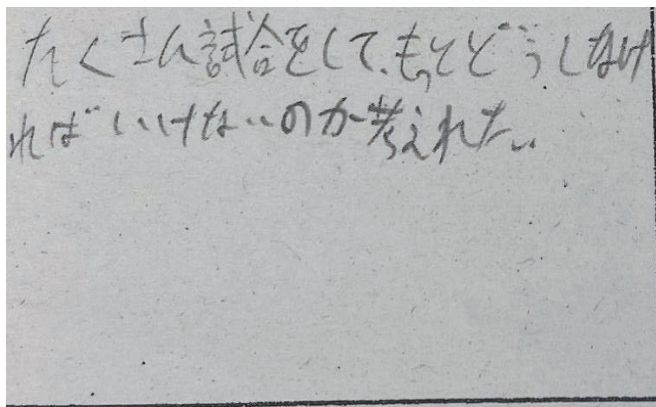 たくさん試合をして、もっとどうしなけ
ればいけないのか考えれた。